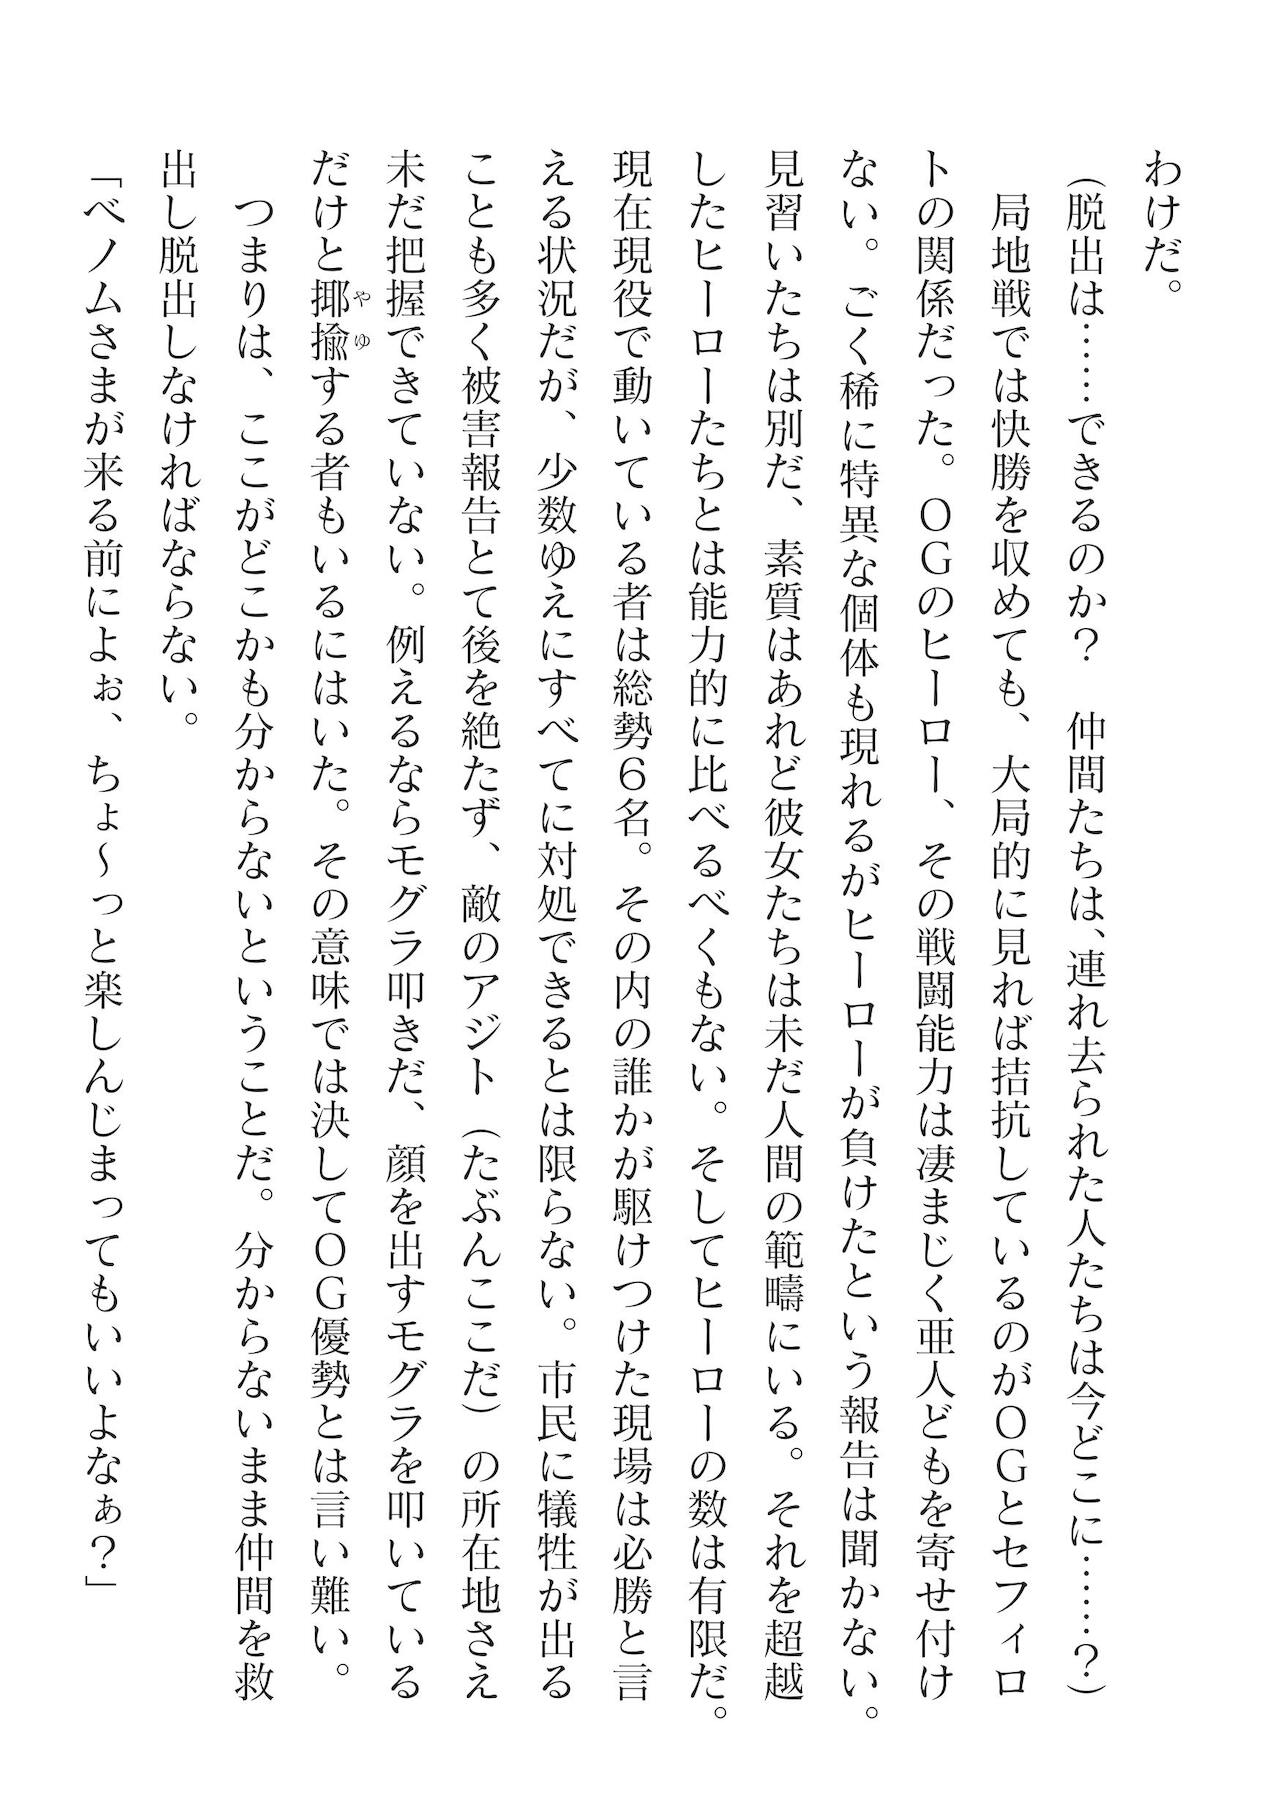 わけだ。
（脱出は……できるのか？　仲間たちは、連れ去られた人たちは今どこに……？）
　局地戦では快勝を収めても、大局的に見れば拮抗しているのがＯＧとセフィロ
トの関係だった。ＯＧのヒーロー、その戦闘能力は凄まじく亜人どもを寄せ付け
ない。ごく稀に特異な個体も現れるがヒーローが負けたという報告は聞かない。
見習いたちは別だ、素質はあれど彼女たちは未だ人間の範疇にいる。それを超越
したヒーローたちとは能力的に比べるべくもない。そしてヒーローの数は有限だ。
現在現役で動いている者は総勢６名。その内の誰かが駆けつけた現場は必勝と言
える状況だが、少数ゆえにすべてに対処できるとは限らない。市民に犠牲が出る
ことも多く被害報告とて後を絶たず、敵のアジト（たぶんここだ）の所在地さえ
未だ把握できていない。例えるならモグラ叩きだ、顔を出すモグラを叩いている
だけと揶揄する者もいるにはいた。その意味では決してＯＧ優勢とは言い難い。
やゆ
　つまりは、ここがどこかも分からないということだ。分からないまま仲間を救
出し脱出しなければならない。
「ベノムさまが来る前によぉ、ちょ～っと楽しんじまってもいいよなぁ？」